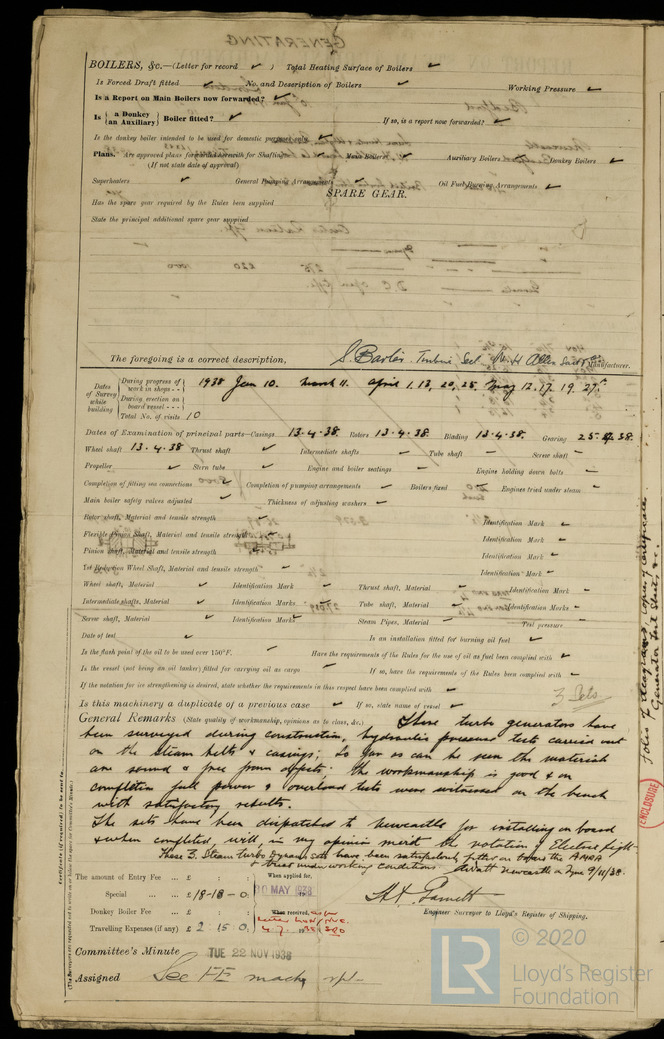 BOILERS, &c.—(Letter for record ✓ ) Total Heating Surface of Boilers ✓
Is Forced Draft fitted ✓ No. and Description of Boilers ✓ Working Pressure ✓
Is a Report on Main Boilers now forwarded? ✓
Is { a Donkey / an Auxiliary } Boiler fitted? ✓ If so, is a report now forwarded? ✓
Is the donkey boiler intended to be used for domestic purposes only ✓
Plans. Are approved plans forwarded herewith for Shafting Main Boilers ✓ Auxiliary Boilers ✓ Donkey Boilers ✓
(If not state date of approval)
Superheaters ✓ General Pumping Arrangements ✓ Oil Fuel Burning Arrangements ✓
SPARE GEAR.
Has the spare gear required by the Rules been supplied
State the principal additional spare gear supplied
The foregoing is a correct description, Manufacturer.
Dates of Survey while building
During progress of work in shops - - 1938 Jan 10. March 11. April 1, 13, 20, 25, May 12. 17. 19. 27th
During erection on board vessel - - -
Total No. of visits 10
Dates of Examination of principal parts—Casings 13.4.38. Rotors 13.4.38. Blading 13.4.38. Gearing 25.4.38.
Wheel shaft 13.4.38 Thrust shaft ✓ Intermediate shafts ✓ Tube shaft ✓ Screw shaft ✓
Propeller ✓ Stern tube ✓ Engine and boiler seatings ✓ Engine holding down bolts ✓
Completion of fitting sea connections ✓ Completion of pumping arrangements ✓ Boilers fixed Engines tried under steam ✓
Main boiler safety valves adjusted ✓ Thickness of adjusting washers ✓
Rotor shaft, Material and tensile strength Identification Mark ✓
Flexible Pinion Shaft, Material and tensile strength Identification Mark ✓
Pinion shaft, Material and tensile strength Identification Mark ✓
1st Reduction Wheel Shaft, Material and tensile strength ✓ Identification Mark ✓
Wheel shaft, Material ✓ Identification Mark ✓ Thrust shaft, Material ✓ Identification Mark ✓
Intermediate shafts, Material ✓ Identification Marks ✓ Tube shaft, Material ✓ Identification Marks ✓
Screw shaft, Material ✓ Identification Marks ✓ Steam Pipes, Material ✓ Test pressure ✓
Date of test ✓ Is an installation fitted for burning oil fuel ✓
Is the flash point of the oil to be used over 150°F. ✓ Have the requirements of the Rules for the use of oil as fuel been complied with ✓
Is the vessel (not being an oil tanker) fitted for carrying oil as cargo ✓ If so, have the requirements of the Rules been complied with ✓
If the notation for ice strengthening is desired, state whether the requirements in this respect have been complied with ✓
3 Sets
Is this machinery a duplicate of a previous case ✓ If so, state name of vessel ✓
General Remarks (State quality of workmanship, opinions as to class, &c.) These turbo generators have
been surveyed during construction, hydraulic pressure tests carried out
on the steam belts & casings; So far as can be seen the materials
are sound & free from defects. The workmanship is good & on
completion full power & overload tests were witnessed on the bench
with satisfactory results.
The sets have been dispatched to Newcastle for installing on board
& when completed will, in my opinion merit the notation of Electric light.
These 3. Steam turbo dynamo sets have been satisfactorily fitted on board the
& tried under working conditions. Newcastle on Tyne 9/11/38.
The amount of Entry Fee ... £ : : When applied for,
Special ... ... £ 18-18-0: 30 MAY 1938
Donkey Boiler Fee ... £ : : When received,
Travelling Expenses (if any) £ 2 15 0:
Engineer Surveyor to Lloyd's Register of Shipping.
Committee's Minute TUE 22 NOV 1938
Assigned See FE machy rpt
Certificate (if required) to be sent to
ENCLOSURE
© 2020
LR
Lloyd's Register
Foundation